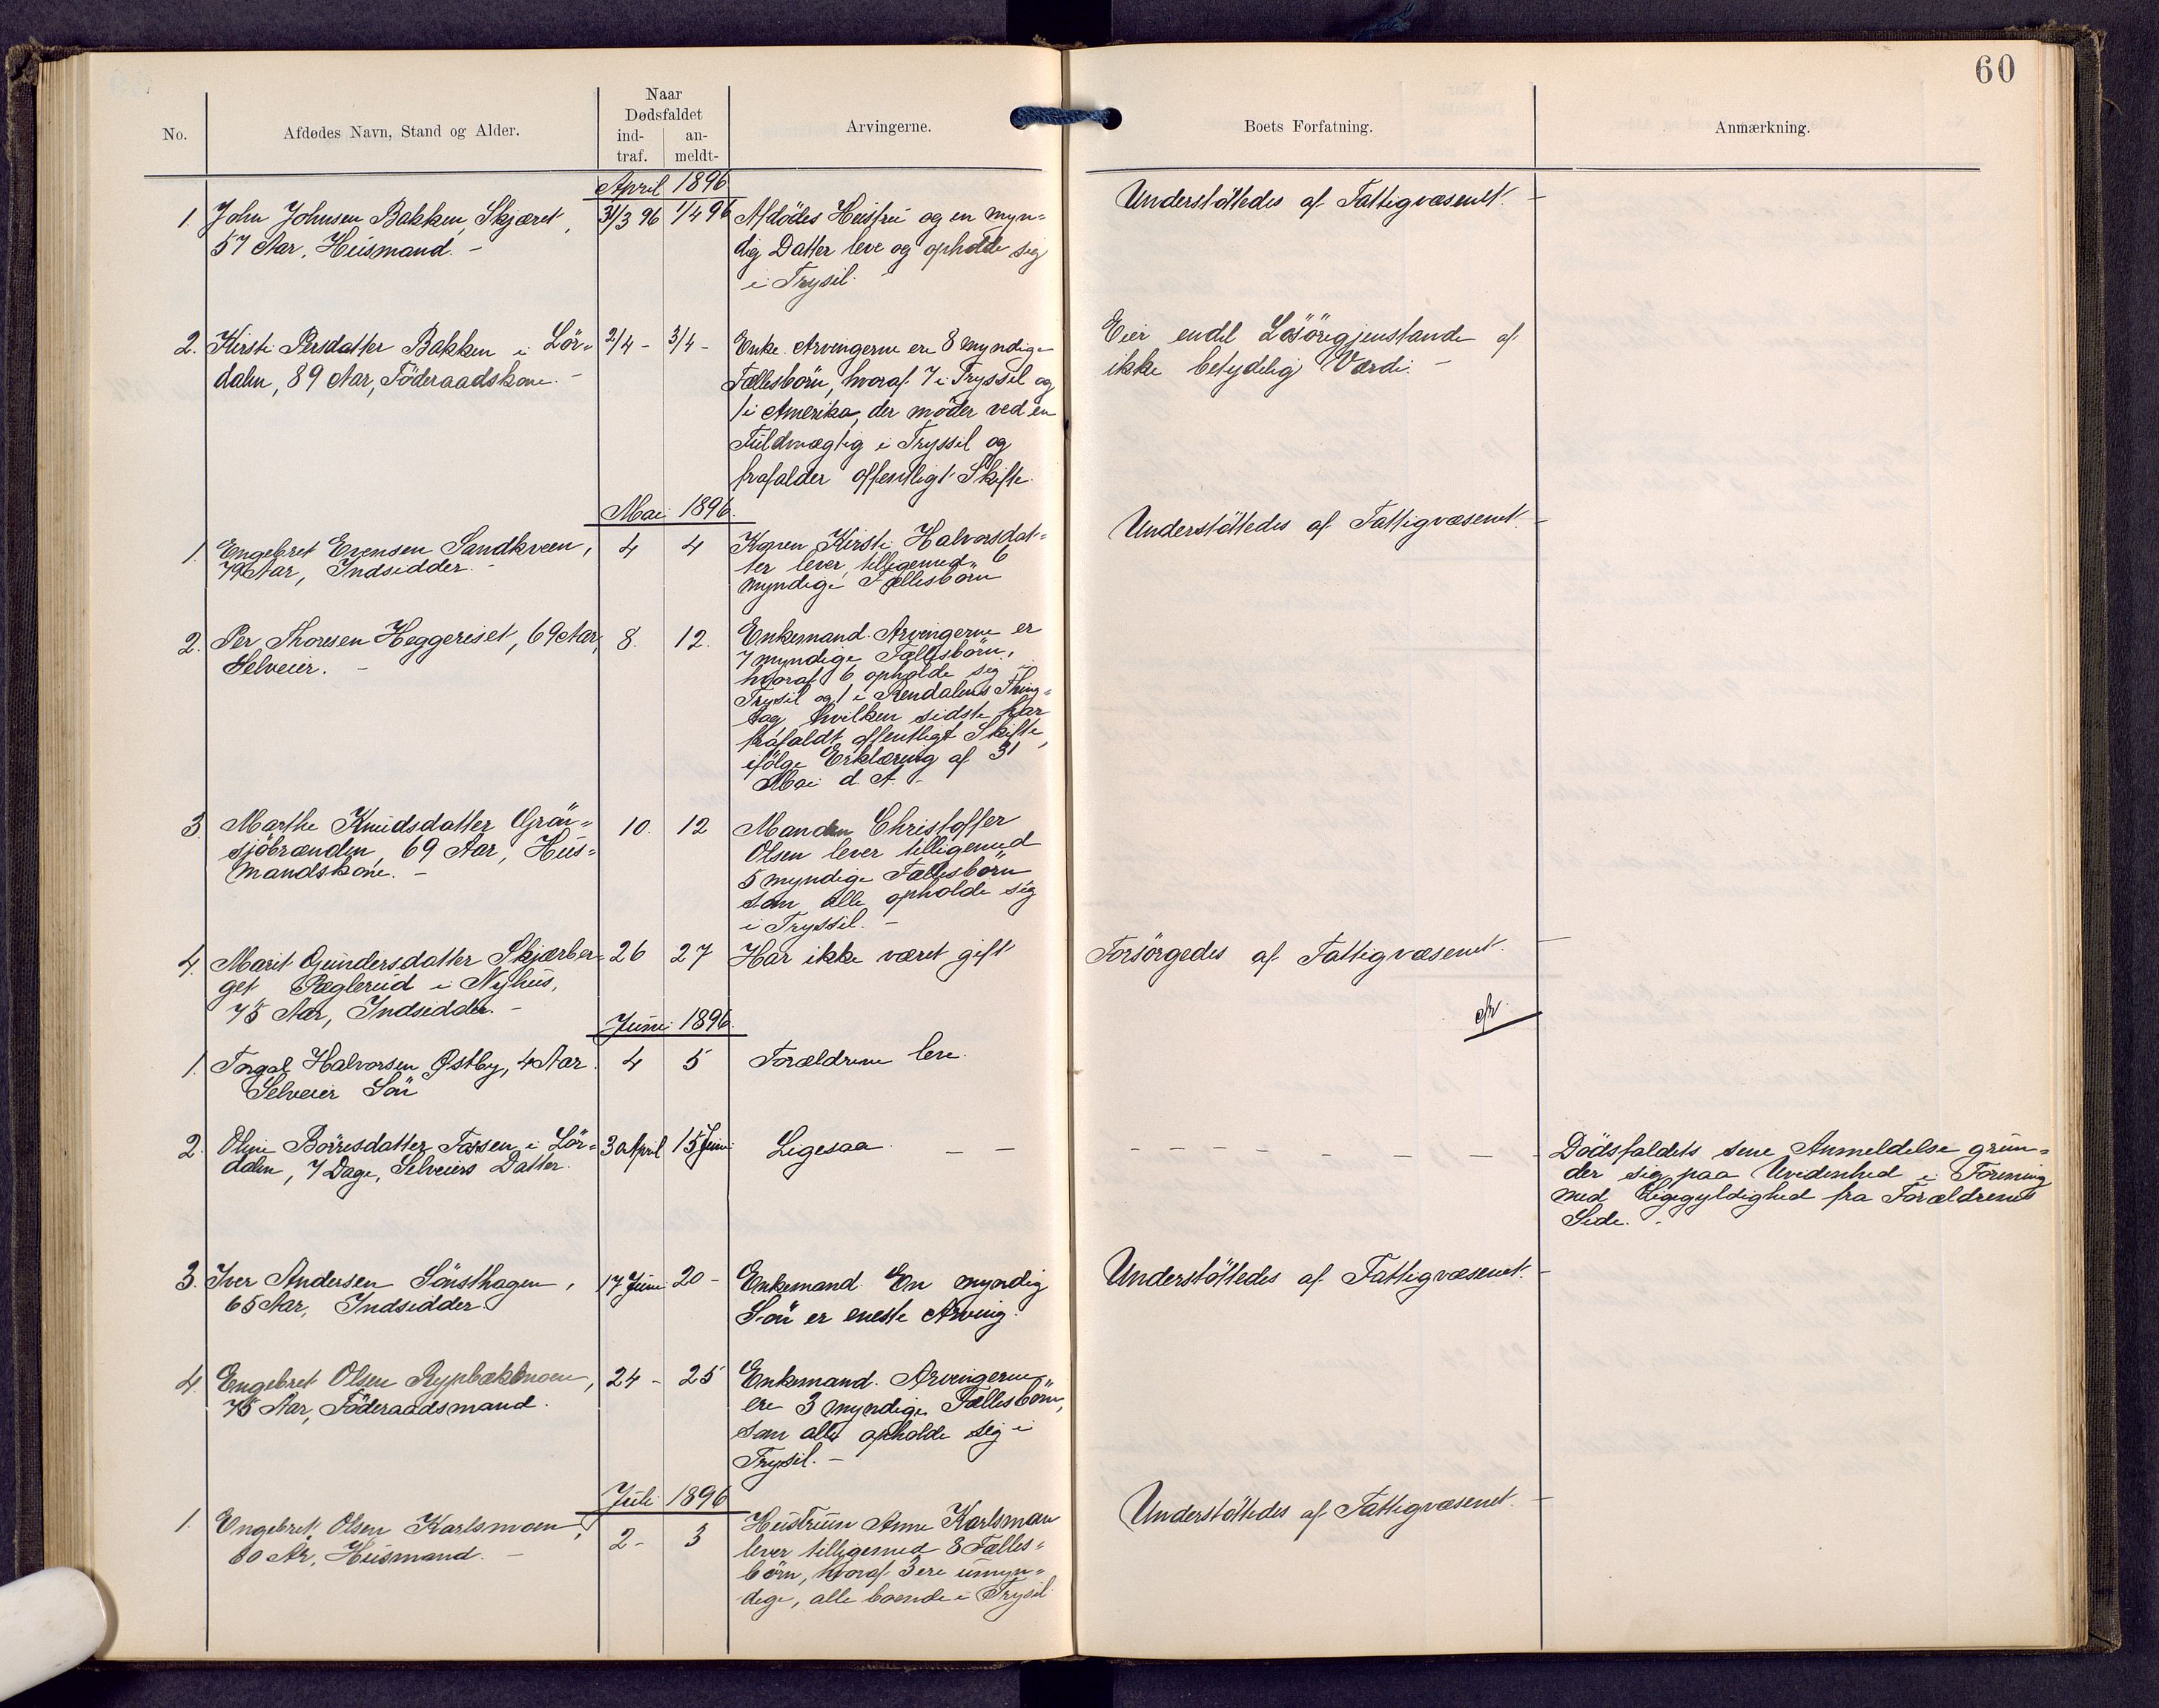 60
No.
Afdødes Navn, Stand og Alder.
Naar
Dødsfaldet
ind-
traf.
an-
meldt-
Arvingerne.
Boets Forfatning.
Anmærkning.
April 1896
1. John Johnsen Bakken, Skjæret, 31/3 96 1/4 96 Afdødes Hustru og en myn-
57 Aar, Husmand. - dig Datter leve og opholde sig
i Trysil.
Understøttedes af Fattigvæsenet. -
2. Kirsti Persdatter Bakken i Lör- 2/4 - 3/4 - Enke. Arvingerne ere 8 myndige
dalen, 89 Aar, Föderaadskone. - Fællesbörn, hvoraf 7 i Tryssil og
1 i Amerika, der möder ved en
Fuldmægtig i Tryssil og
frafalder offentligt Skifte.
Eier endel Lösöregjenstande af
ikke betydelig Værdi. -
Mai 1896.
1. Engebret Evensen Sandkveen, 4 4 Konen Kirsti Halvorsdat-
79 Aar, Indsidder. - ter lever, tilligemed 6
myndige Fællesbörn
Understöttedes af Fattigvæsenet. -
2. Per Thoresen Heggeriset, 69 Aar, 8. 12. Enkemand. Arvingerne er
Selveier. - 7 myndige Fællesbörn,
hvoraf 6 opholde sig i
Trysil og 1 i Rendalens Thing-
lag, hvilken sidste har
frafaldt offentligt Skifte,
ifölge Erklæring af 31
Mai d. A. -
3. Marthe Knudsdatter Grön- 10. 12 Manden Christoffer
sjöbrænden, 69 Aar, Hus- Olsen lever tilligemed
mandskone. - 5 myndige Fællesbörn
som alle opholde sig
i Tryssil. -
4. Marit Gundersdatter Skjærber- 26 27 Har ikke været gift
get Ræglerud i Nyhus,
75 Aar, Indsidder. -
Forsörgedes af Fattigvæsenet. -
Juni 1896.
1. Torgal Halvorsen Østby, 4 Aar. 4 5 Forældrene leve.
Selveier Sön
2. Oline Börresdatter Fossen i Lör- 3 April 15 Juni Ligesaa - -
dalen, 7 Dage, Selveiers Datter.
Dödsfaldets sene Anmeldelse grun-
der sig paa Uvidenhed i Forening
med Ligegyldighed fra Forældrenes
Side. -
3. Iver Andersen Sönsthagen, 17 Juni 20 - Enkemand. En myndig
65 Aar, Indsidder. Sön er eneste Arving.
Understöttedes af Fattigvæsenet. -
4. Engebret Olsen Rypbækmoen, 24 - 25 Enkemand. Arvingerne
75 Aar, Föderaadsmand. ere 3 myndige Fællesbörn,
som alle opholde sig i
Trysil. -
Juli 1896
1. Engebret Olsen Karlsmoen, 2 - 3 Hustruen Anne Karlsmoen
60 Ar, Husmand. - lever tilligemed 8 Fælles-
börn, hvoraf 3 ere umyn-
dige, alle boende i Trysil.
Understöttedes af Fattigvæsenet. -